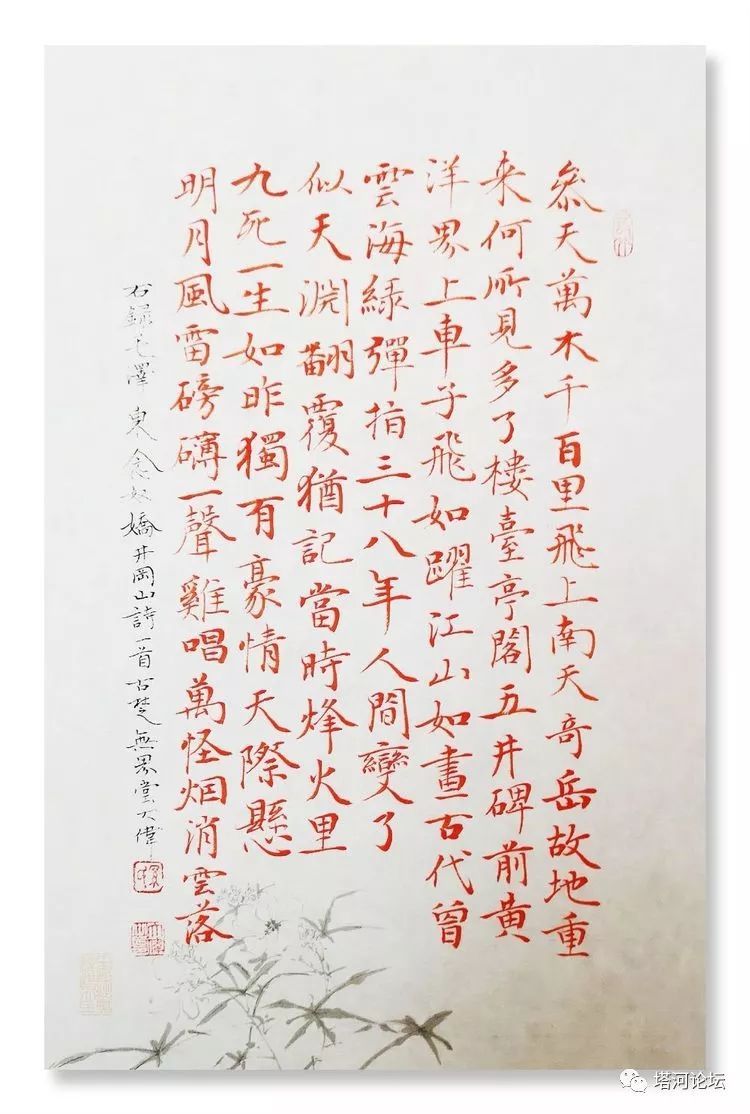 叅天萬木千百里飛上南天奇岳故地重
来何所見多了樓臺亭閣五井碑前黄
洋界上車子飛如躍江山如畫古代曾
雲海綠彈指三十八年人間變了
似天淵翻覆猶記當時烽火里
九死一生如昨獨有豪情天際懸
明月風雷磅礴一聲雞唱萬怪烟消雲落
右錄毛澤東念奴嬌井岡山詩一首古楚無界堂大偉
塔河论坛